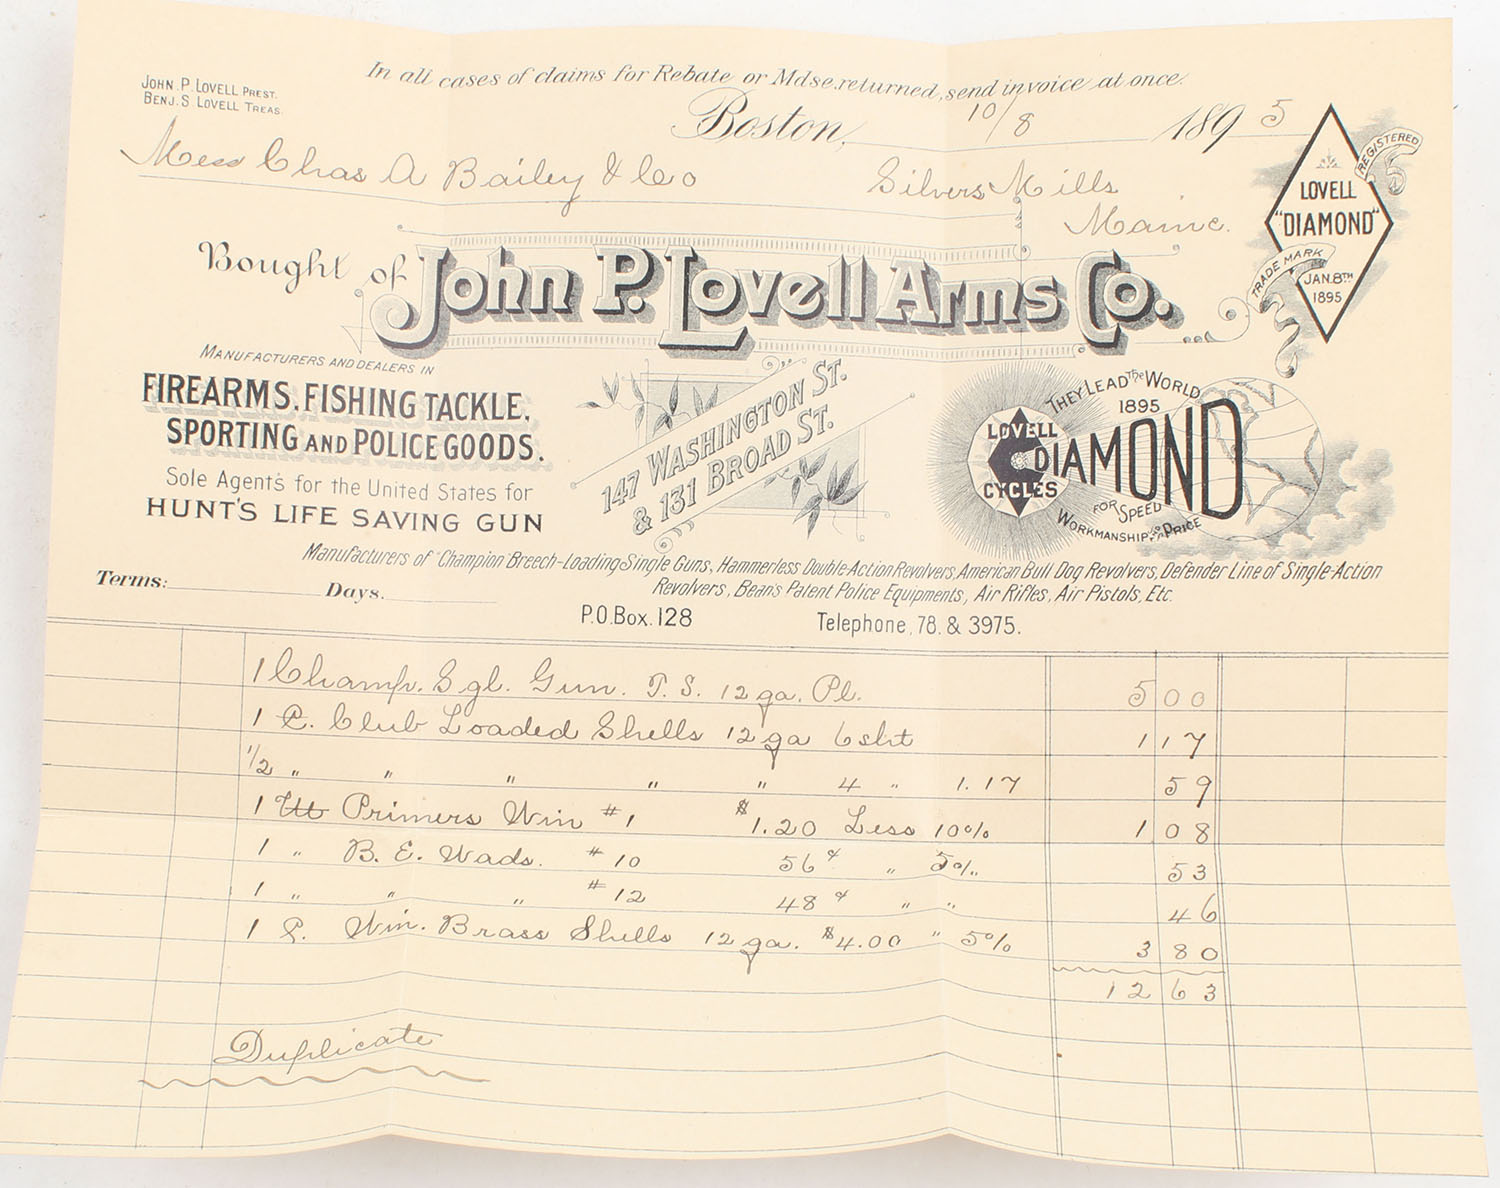 JOHN. P. LOVELL PREST.
BENJ. S. LOVELL TREAS.
In all cases of claims for Rebate or Mdse. returned, send invoice at once.
Boston, 10/8 1895
Mess Chas A Bailey & Co Silvers Mills
Maine.
REGISTERED
LOVELL
"DIAMOND"
TRADE MARK
JAN. 8TH
1895
Bought of John P. Lovell Arms Co.
MANUFACTURERS AND DEALERS IN
FIREARMS, FISHING TACKLE,
SPORTING AND POLICE GOODS.
Sole Agents for the United States for
HUNT'S LIFE SAVING GUN
147 WASHINGTON ST.
& 131 BROAD ST.
THEY LEAD THE WORLD
1895
LOVELL
DIAMOND
CYCLES
FOR SPEED
WORKMANSHIP PRICE
Manufacturers of "Champion" Breech-Loading Single Guns, Hammerless Double-Action Revolvers, American Bull Dog Revolvers, Defender Line of Single-Action
Revolvers, Bean's Patent Police Equipments, Air Rifles, Air Pistols, Etc.
Terms: Days.
P.O. Box. 128 Telephone, 78. & 3975.
1 Champ. Sgl. Gun. T. S. 12 ga. Pl. 5 00
1 C. Club Loaded Shells 12 ga 6 sht 1 17
1/2 " " " " " 4 " 1.17 59
1 M Primers Win #1 $1.20 Less 10% 1 08
1 " B. E. Wads. #10 56¢ " 5% 53
1 " " " #12 48¢ " " 46
1 C. Win. Brass Shells 12 ga. $4.00 " 5% 3 80
12 63
Duplicate